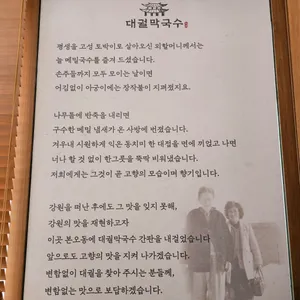 대궐막국수
평생을 고성 토박이로 살아오신 외할머니께서는
늘 메밀국수를 즐겨 드셨습니다.
손주들까지 모두 모이는 날이면
어김없이 아궁이에는 장작불이 지펴졌지요.
나무통에 반죽을 내리면
구수한 메밀 냄새가 온 사방에 번졌습니다.
겨우내 시원하게 익은 동치미 한 대접을 면에 끼얹고 나면
너나 할 것 없이 한그릇을 뚝딱 비워냈습니다.
저희에게는 그것이 곧 고향의 모습이며 향기입니다.
강원을 떠난 후에도 그 맛을 잊지 못해,
강원의 맛을 재현하고자
이곳 본오동에 대궐막국수 간판을 내걸었습니다
앞으로도 고향의 맛을 지켜 나가겠습니다.
변함없이 대궐을 찾아 주시는 분들께,
변함없는 맛으로 보답하겠습니다.